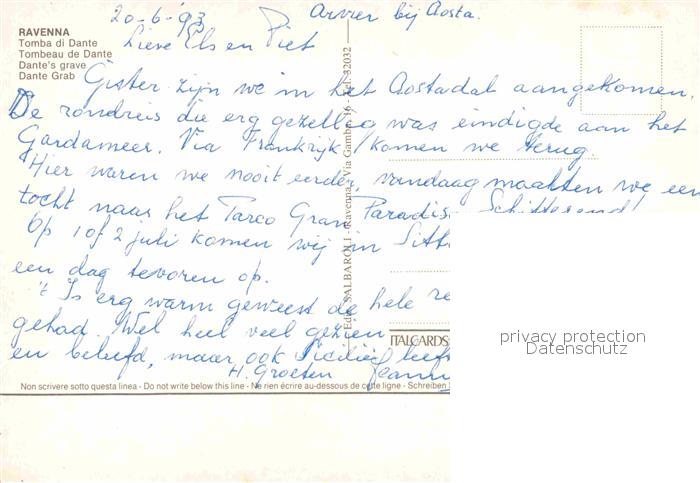 RAVENNA
Tomba di Dante
Tombeau de Dante
Dante's grave
Dante Grab
20-6-'93 Arvier bij Aosta.
Lieve Els en Piet
Gister zijn we in het Aostadal aangekomen.
De rondreis die erg gezellig was eindigde aan het
Gardameer. Via Frankrijk komen we terug.
Hier waren we nooit eerder, vandaag maakten we een
tocht naar het Parco Gran Paradiso Schitterend!
Op 1 of 2 juli komen wij in Sitt
een dag tevoren op.
't Is erg warm geweest de hele re
gehad. Wel heel veel gezien
en beleefd, maar ook Sicilië
H. Groeten
Ediz. SALBAROLI - Ravenna - Via Gamba, 16 - Tel. 32032
ITALCARDS
Non scrivere sotto questa linea - Do not write below this line - Ne rien écrire au-dessous de cette ligne - Schreiben
privacy protection
Datenschutz